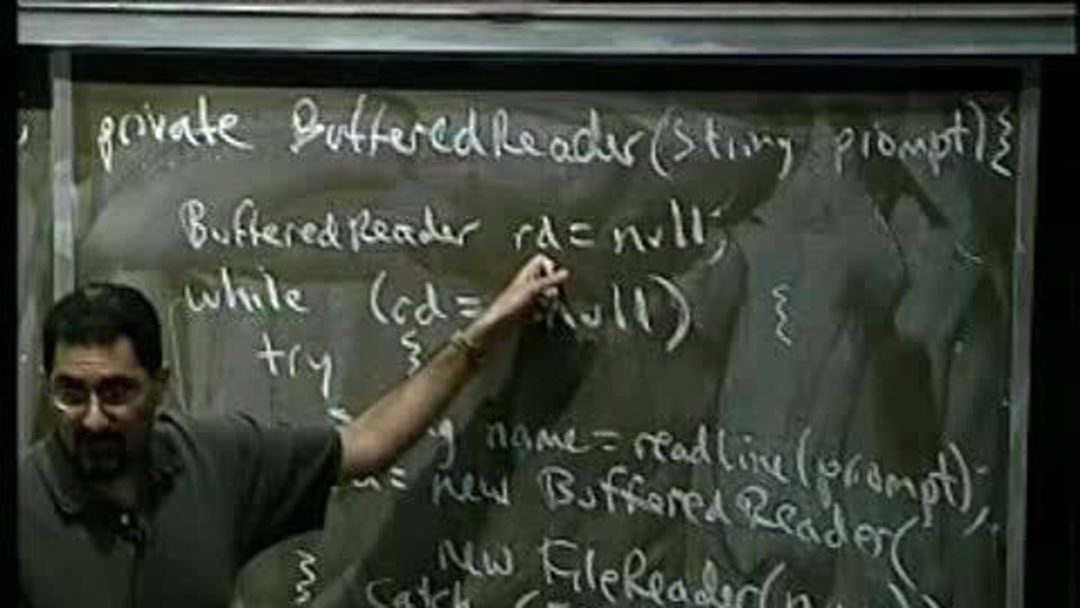 private BufferedReader(String prompt){
BufferedReader rd=null;
while (rd= null) {
try {
name=readLine(prompt);
= new BufferedReader(
new FileReader(
} catch (